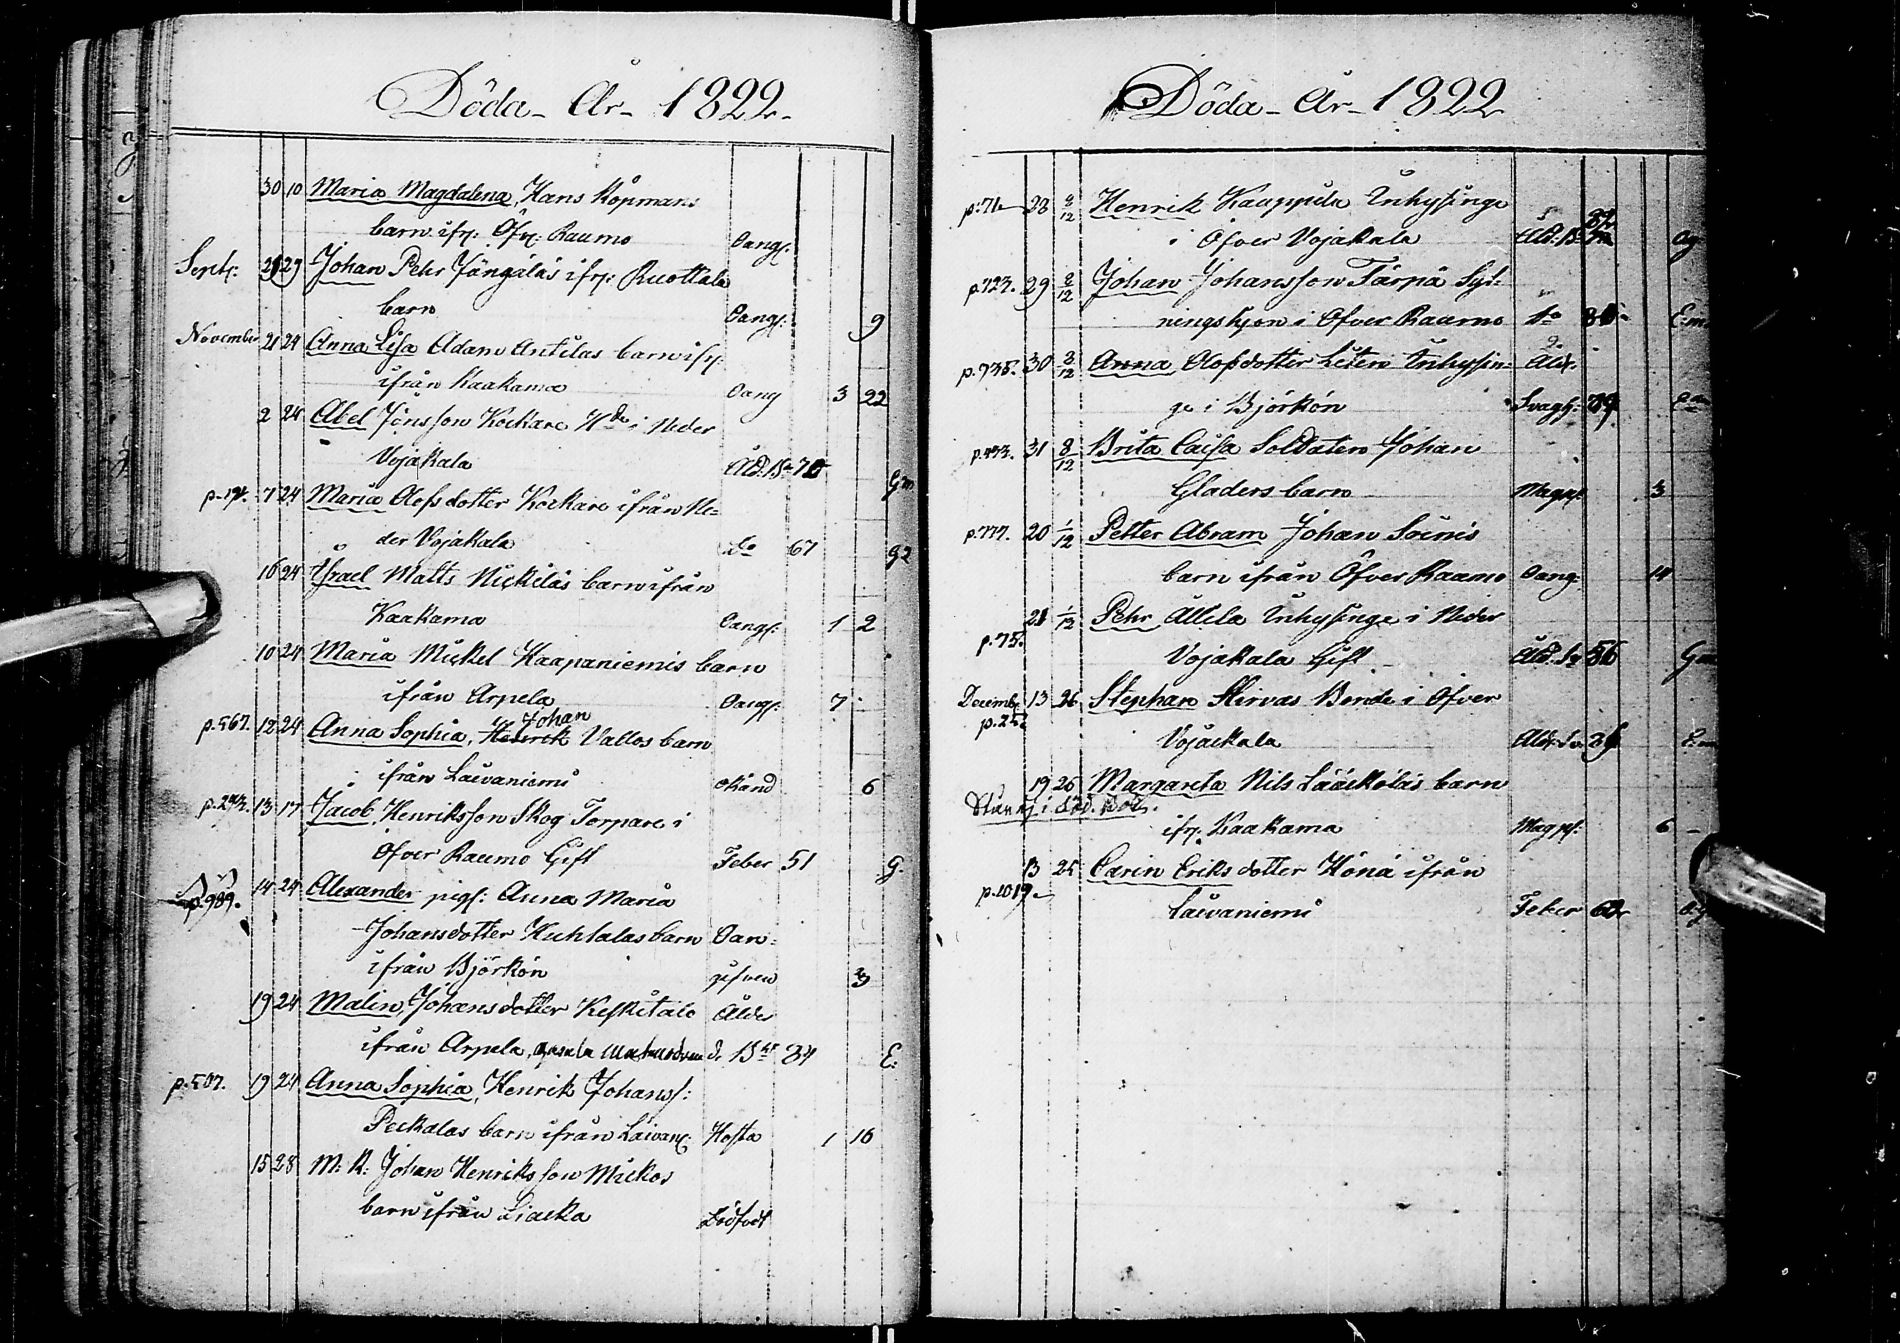 Döda - År - 1822 -
30 10 Maria Magdalena, Hans Köpmans
barn ifr: Öfr: Raumo Oangf:
Sept: 21 29 Johan Pehr Jängäläs ifr: Ruottala
barn Oangf: 9
November 21 24 Anna Lisa Adam Antilas barn ifr:
ifrån Kaakama Oang 3 22
2 24 Abel Jönsson Kockare i Neder
Vojakala Åld: 70 Gm
p. 7 24 Maria Olofsdotter Kockare ifrån Ne=
der Vojakala do 67
16 24 Israel Matts Nickiläs barn ifrån
Kaakama Oangf: 1 2
10 24 Maria Mickel Kaapaniemis barn
ifrån Arpela Oangf: 7
Johan
p. 567. 12 24 Anna Sophia, Henrik Vallos barn
ifrån Laivaniemi okänd 6
p. 13 17 Jacob Henriksson Skog Torpare i
Öfver Raumo Gift Feber 51 G.
p. 989. 14 24 Alexander pigs: Anna Maria
Johansdotter Huhtalas barn Oan=
ifrån Björkön gifven 3
19 24 Malin Johansdotter Keskitalo Ålder
ifrån Arpela, 84 E:
p. 507. 19 24 Anna Sophia, Henrik Johans:
Peckalas barn ifrån Laivan: Hosta 1 16
15 28 M: K: Johan Henriksson Mickos
barn ifrån Liacka Dödfödt
Döda - År - 1822
p: 71 28 8/12 Henrik Kauppila Inhysinge
i Öfver Vojakala
p. 723. 29 8/12 Johan Johansson Tärpä Syt=
ningshjon i Öfver Raumo do 80 E:m.
p. 735. 30 8/12 Anna Olofsdotter Inhysin= Ald.
ge i Björkön Svagh:
p. 31 8/12 Brita Caisa Soldaten Johan
Gladers barn Magpl: 3
p. 777. 20 1/12 Petter Abram Johan Soinis
barn ifrån Öfver Raumo Oang: 14
21 1/12 Pehr Allila Inhysinge i Neder
p. 75.
Vojakala Gift Åld. 56 Gm
Decemb: 13 26 Stephan Hirvas Bonde i Öfver
p. 25
Vojackala Ald.
19 26 Margareta Nils Lääcköläs barn
ifr: Kaakama Magpl: 6 -
13 25 Carin Eriksdotter Hönä ifrån
p. 1019.
Laivaniemi Feber